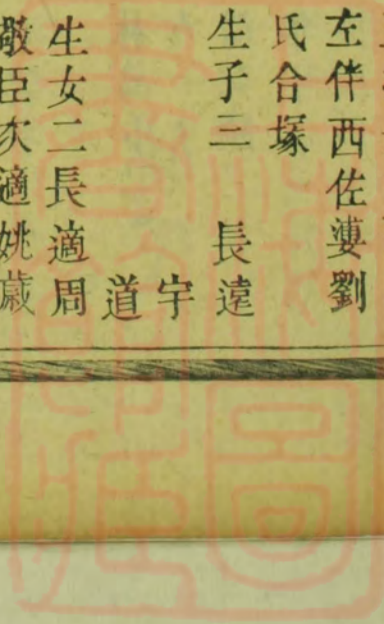 左伴西佐婁劉
氏合塚
生子三　長遠
宇
道
生女二長適周
敬臣次適姚